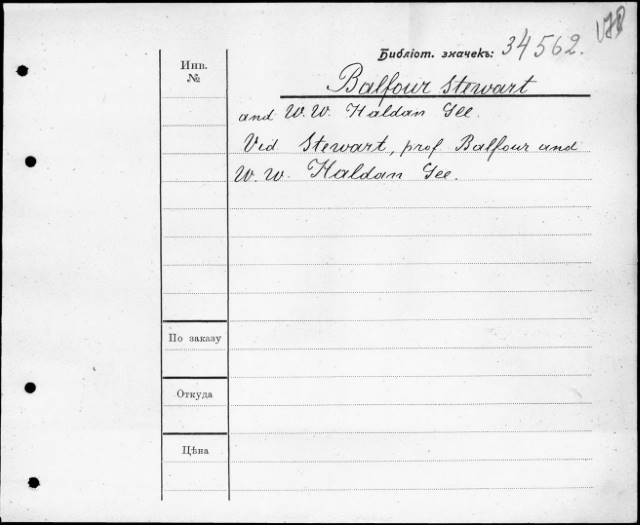 Библіот. значекъ: 34562.
Инв.
№
Balfour Stewart
and W. W. Haldan Gee.
Vid Stewart, prof Balfour and
W. W. Haldan Gee.
По заказу
Откуда
Цѣна